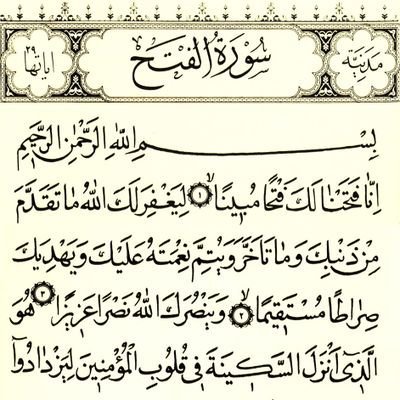 مدنيّة سورة الفتح اياتها ٢٩
بِسْمِ اللّٰهِ الرَّحْمٰنِ الرَّحٖيمِ
اِنَّا فَتَحْنَا لَكَ فَتْحًا مُبٖينًا ﴿١﴾ لِيَغْفِرَ لَكَ اللّٰهُ مَا تَقَدَّمَ
مِنْ ذَنْبِكَ وَمَا تَاَخَّرَ وَيُتِمَّ نِعْمَتَهُ عَلَيْكَ وَيَهْدِيَكَ
صِرَاطًا مُسْتَقٖيمًا ﴿٢﴾ وَيَنْصُرَكَ اللّٰهُ نَصْرًا عَزٖيزًا ﴿٣﴾ هُوَ
الَّذٖٓى اَنْزَلَ السَّكٖينَةَ فٖى قُلُوبِ الْمُؤْمِنٖينَ لِيَزْدَادُٓوا